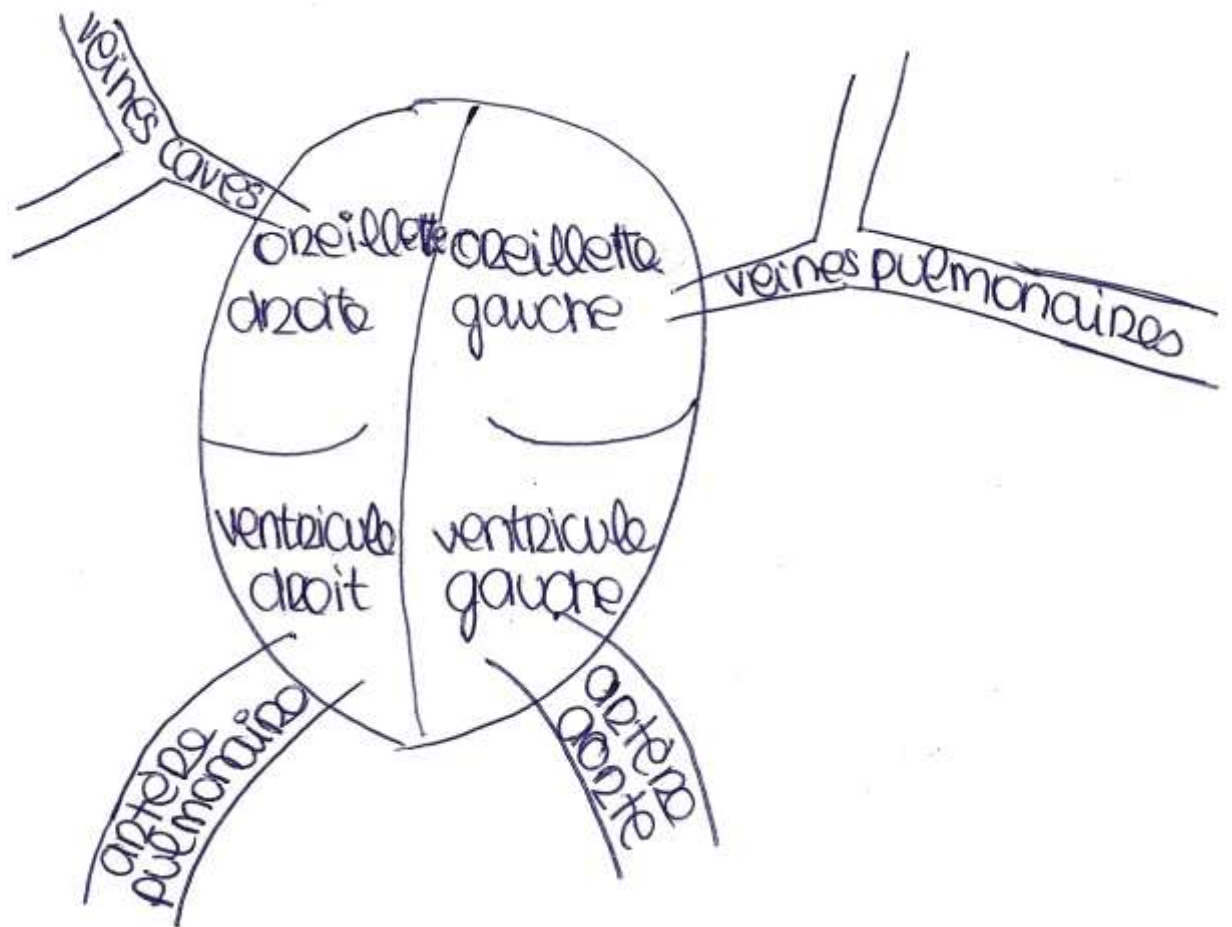 veines caves
oreillette
droite
oreillette
gauche
veines pulmonaires
ventricule
droit
ventricule
gauche
artère
pulmonaire
artère
aorte